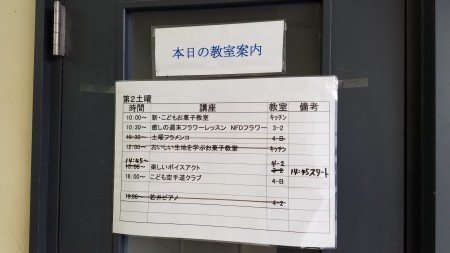 本日の教室案内
第2土曜
時間 講座 教室 備考
10:00～ 新・こどもお菓子教室 キッチン
10:30～ 癒しの週末フラワーレッスン NFDフラワー 3-2
10:30～ 土曜フラメンコ 4-B
12:00～ おいしい生地を学ぶお菓子教室 キッチン
14:45～ 4-2
楽しいボイスアクト 3-2 14:45スタート
16:00～ こども空手道クラブ 4-B
19:00～ 若井ピアノ 4-2